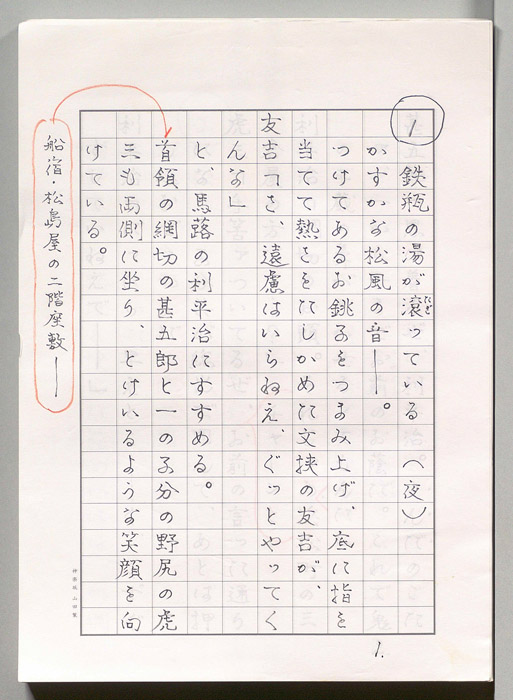 1
鉄瓶の湯が滾っている(夜)
たぎ
かすかな松風の音――。
つけてあるお銚子をつまみ上げ、底に指を
当てて熱さをたしかめた文挟の友吉が、
友吉「さ、遠慮はいらねえ、ぐッとやってく
んな」
と、馬蕗の利平治にすすめる。
首領の網切の甚五郎と一の子分の野尻の虎
三も両側に坐り、とけいるような笑顔を向
けている。
船宿・松島屋の二階座敷――
1.